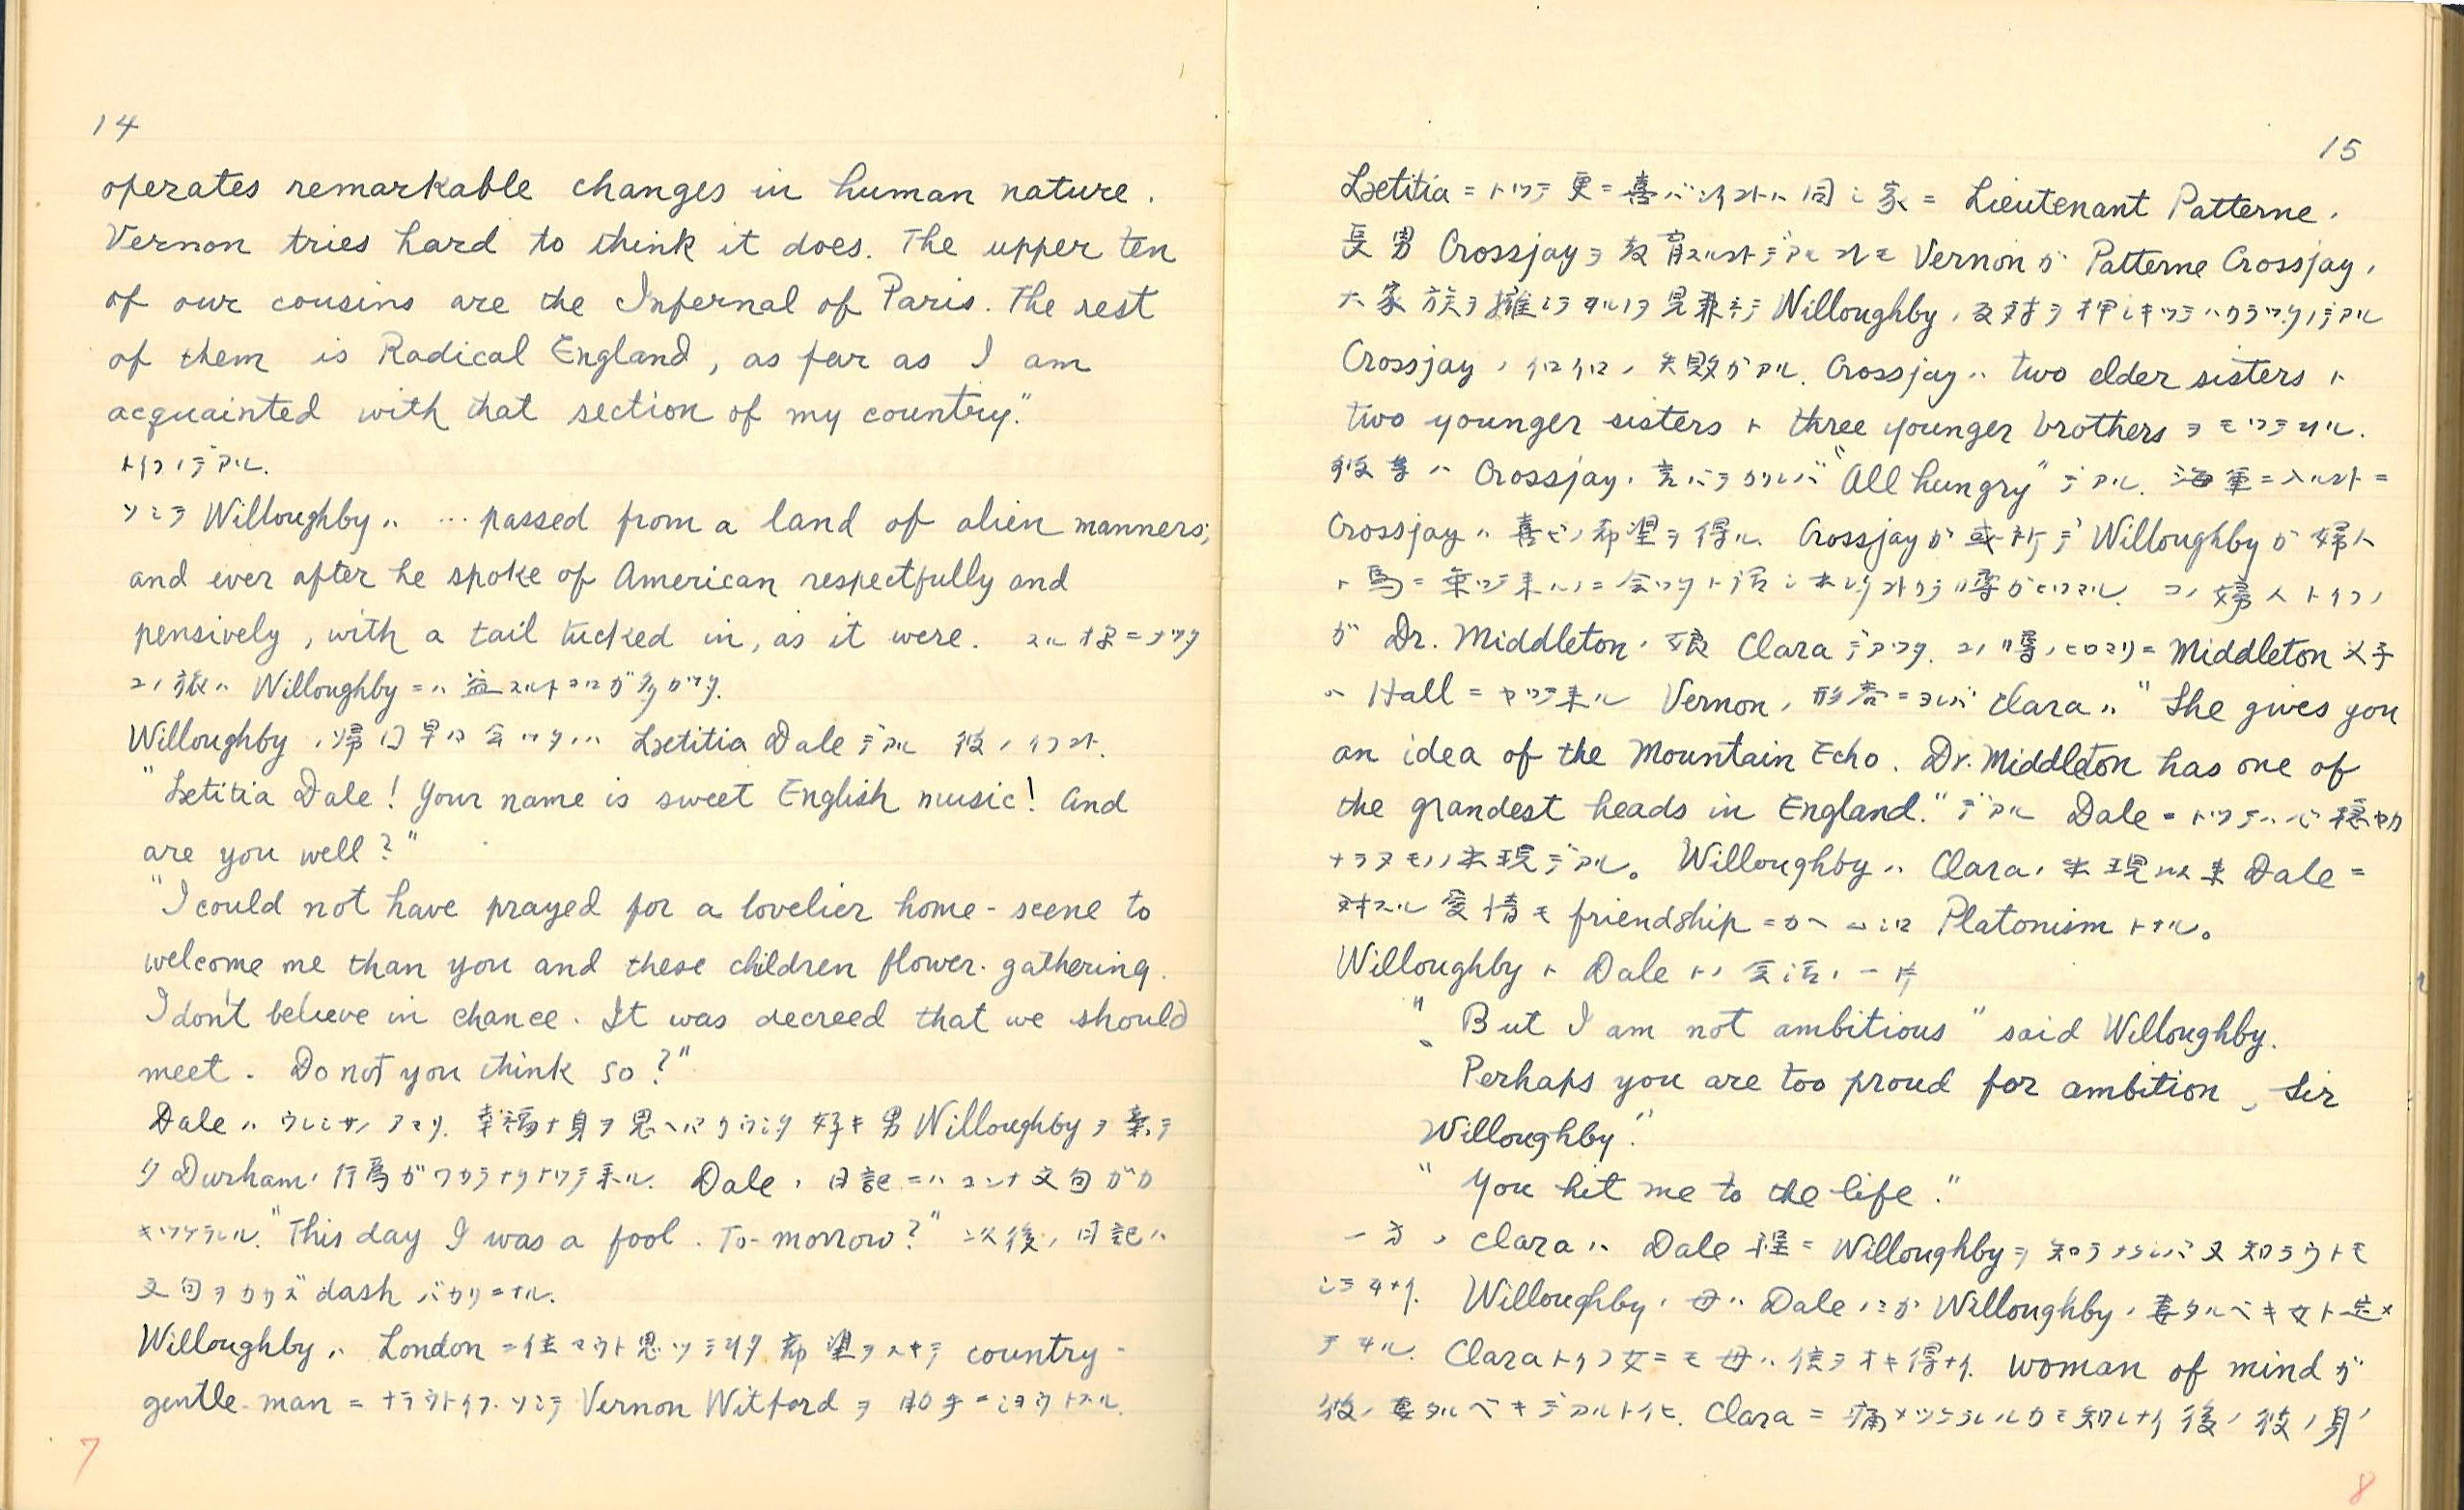 14
operates remarkable changes in human nature.
Vernon tries hard to think it does. The upper ten
of our cousins are the Infernal of Paris. The rest
of them is Radical England, as far as I am
acquainted with that section of my country."
トイフノデアル.
ソシテ Willoughby ハ ... passed from a land of alien manners;
and ever after he spoke of American respectfully and
pensively, with a tail tucked in, as it were. スル様ニナツタ
コノ旅ハ Willoughby ニハ益スルトコロガ多カツタ.
Willoughby ノ帰日早ク会ツタノハ Laetitia Dale デアル 彼ノイフコト.
"Laetitia Dale! Your name is sweet English music! And
are you well?"
"I could not have prayed for a lovelier home-scene to
welcome me than you and these children flower-gathering.
I don't believe in chance. It was decreed that we should
meet. Do not you think so?"
Dale ハ ウレシサノアマリ. 幸福ナ身ヲ思ヘバ 好キ男 Willoughby ヲ棄テ
タ Durham ノ行為ガワカラナクナツテ来ル. Dale ノ日記ニハコンナ文句ガカ
キツケラレル. "This day I was a fool. To-morrow?" 以後ノ日記ハ
文句ヲカカズ dash バカリニナル.
Willoughby ハ London ニ住マウト思ツテヰタ希望ヲステテ country-
gentle-man ニナラウトイフ. ソシテ Vernon Witford ヲ助手ニシヨウトスル.
7
15
Laetitia ニトツテ更ニ喜バシイコトハ同ジ家ニ Lieutenant Patterne ノ
長男 Crossjay ヲ教育スルコトデアル コレモ Vernon ガ Patterne Crossjay ノ
大家族ヲ擁シテヰルノヲ見兼ネテ Willoughby ノ反対ヲ押シキツテ ノデアル
Crossjay ノイロイロノ失敗ガアル. Crossjay ハ two elder sisters ト
two younger sisters ト three younger brothers ヲモツテヰル.
彼等ハ Crossjay ノ言バヲカレバ "All hungry" デアル. 海軍ニ入ルコトニ
Crossjay ハ喜ビノ希望ヲ得ル. Crossjay ガ或所デ Willoughby ガ婦人
ト馬ニ乗ツテ来ルノニ会ツタト話シ 噂ガヒロマル. コノ婦人トイフノ
ガ Dr. Middleton ノ娘 Clara デアツタ. コノ噂ノヒロマリニ Middleton 父子
ハ Hall ニヤツテ来ル Vernon ノ形容ニヨレバ Clara ハ "She gives you
an idea of the Mountain Echo. Dr. Middleton has one of
the grandest heads in England." デアル Dale ニトツテハ心穏ヤカ
ナラヌモノノ出現デアル。 Willoughby ハ Clara ノ出現以来 Dale ニ
対スル愛情モ friendship ニカヘムシロ Platonism トナル。
Willoughby ト Dale トノ会話ノ一片
" But I am not ambitious" said Willoughby.
" Perhaps you are too proud for ambition, Sir
Willoughby."
" You hit me to the life."
一方、Clara ハ Dale 程ニ Willoughby ヲ知ラナケレバ又知ラウトモ
シテヰナイ. Willoughby ノ母ハ Dale ノミガ Willoughby ノ妻タルベキ女ト定メ
テヰル. Clara トイフ女ニモ母ハ信ヲオキ得ナイ. Woman of mind ガ
彼ノ妻タルベキデアルト伝ヒ. Clara ニ痛メツケラレルカモ知レナイ後ノ彼ノ身ノ
8